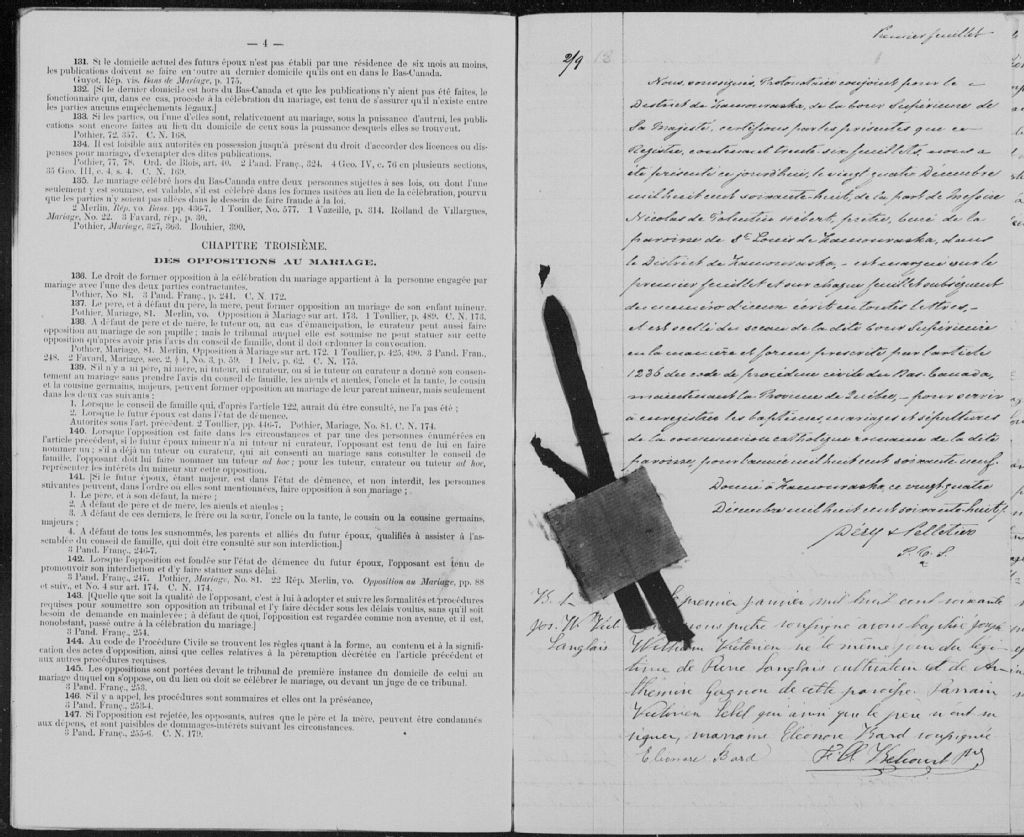 — 4 —
131. Si le domicile actuel des futurs époux n'est pas établi par une résidence de six mois au moins,
les publications doivent se faire en outre au dernier domicile qu'ils ont eu dans le Bas-Canada.
Guyot, Rép. vis. Bans de Mariage, p. 175.
132. [Si le dernier domicile est hors du Bas-Canada et que les publications n'y aient pas été faites, le
fonctionnaire qui, dans ce cas, procède à la célébration du mariage, est tenu de s'assurer qu'il n'existe entre
les parties aucuns empêchements légaux.]
133. Si les parties, ou l'une d'elles sont, relativement au mariage, sous la puissance d'autrui, les publi-
cations sont encore faites au lieu du domicile de ceux sous la puissance desquels elles se trouvent.
Pothier, 72, 357. C. N. 168.
134. Il est loisible aux autorités en possession jusqu'à présent du droit d'accorder des licences ou dis-
penses pour mariage, d'exempter des dites publications.
Pothier, 77, 78. Ord. de Blois, art. 40. 2 Pand. Franç., 324. 4 Geo. IV, c. 76 en plusieurs sections,
35 Geo. III, c. 4, s. 4. C. N. 169.
135. Le mariage célébré hors du Bas-Canada entre deux personnes sujettes à ses lois, ou dont l'une
seulement y est soumise, est valable, s'il est célébré dans les formes usitées au lieu de la célébration, pourvu
que les parties n'y soient pas allées dans le dessein de faire fraude à la loi.
2 Merlin, Rép. vo. Bans. pp. 436-7. 1 Toullier, No. 577. 1 Vazeille, p. 314. Rolland de Villargues,
Mariage, No. 22. 3 Favard, rép., p. 39.
Pothier, Mariage, 327, 363. Bouhier, 390.
CHAPITRE TROISIÈME.
DES OPPOSITIONS AU MARIAGE.
136. Le droit de former opposition à la célébration du mariage appartient à la personne engagée par
mariage avec l'une des deux parties contractantes.
Pothier, No. 81. 3 Pand. Franç., p. 241. C. N. 172.
137. Le père, et à défaut du père, la mère, peut former opposition au mariage de son enfant mineur.
Pothier, Mariage, 81. Merlin, vo. Opposition à Mariage sur art. 173. 1 Toullier, p. 489. C. N. 173.
138. A défaut de père et de mère, le tuteur ou, au cas d'émancipation, le curateur peut aussi faire
opposition au mariage de son pupille ; mais le tribunal auquel elle est soumise ne peut statuer sur cette
opposition qu'après avoir pris l'avis du conseil de famille, dont il doit ordonner la convocation.
Pothier, Mariage, 81. Merlin, Opposition à Mariage sur art. 172. 1 Toullier, p. 425, 490. 3 Pand. Fran.,
248. 2 Favard, Mariage, sec. 2, § 1, No. 3, p. 59. 1 Delv., p. 62. C. N. 175.
139. S'il n'y a ni père, ni mère, ni tuteur, ni curateur, ou si le tuteur ou curateur a donné son consen-
tement au mariage sans prendre l'avis du conseil de famille, les aïeuls et aïeules, l'oncle et la tante, le cousin
et la cousine germains, majeurs, peuvent former opposition au mariage de leur parent mineur, mais seulement
dans les deux cas suivants ;
1. Lorsque le conseil de famille qui, d'après l'article 122, aurait dû être consulté, ne l'a pas été ;
2. Lorsque le futur époux est dans l'état de démence.
Autorités sous l'art. précédent. 2 Toullier, pp. 446-7. Pothier, Mariage, No. 81. C. N. 174.
140. Lorsque l'opposition est faite dans les circonstances et par une des personnes énumérées en
l'article précédent, si le futur époux mineur n'a ni tuteur ni curateur, l'opposant est tenu de lui en faire
nommer un ; s'il a déjà un tuteur ou curateur, qui ait consenti au mariage sans consulter le conseil de
famille, l'opposant doit lui faire nommer un tuteur ad hoc ; pour les tuteur, curateur ou tuteur ad hoc,
représenter les intérêts du mineur sur cette opposition.
141. [Si le futur époux, étant majeur, est dans l'état de démence, et non interdit, les personnes
suivantes peuvent, dans l'ordre où elles sont mentionnées, faire opposition à son mariage ;
1. Le père, et à son défaut, la mère ;
2. A défaut de père et de mère, les aïeuls et aïeules ;
3. A défaut de ces derniers, le frère ou la sœur, l'oncle ou la tante, le cousin ou la cousine germains,
majeurs ;
4. A défaut de tous les susnommés, les parents et alliés du futur époux, qualifiés à assister à l'as-
semblée du conseil de famille, qui doit être consulté sur son interdiction.]
3 Pand. Franç., 246-7.
142. Lorsque l'opposition est fondée sur l'état de démence du futur époux, l'opposant est tenu de
promouvoir son interdiction et d'y faire statuer sans délai.
3 Pand. Franç., 247. Pothier, Mariage, No. 81. 22 Rép. Merlin, vo. Opposition au Mariage, pp. 88
et suiv., et No. 4 sur art. 174. C. N. 174.
143. [Quelle que soit la qualité de l'opposant, c'est à lui à adopter et suivre les formalités et procédures
requises pour soumettre son opposition au tribunal et l'y faire décider sous les délais voulus, sans qu'il soit
besoin de demande en mainlevée ; à défaut de quoi, l'opposition est regardée comme non avenue, et il est,
nonobstant, passé outre à la célébration du mariage.]
3 Pand. Franç., 254.
144. Au code de Procédure Civile se trouvent les règles quant à la forme, au contenu et à la signifi-
cation des actes d'opposition, ainsi que celles relatives à la péremption décrétée en l'article précédent et
aux autres procédures requises.
145. Les oppositions sont portées devant le tribunal de première instance du domicile de celui au
mariage duquel on s'oppose, ou du lieu où doit se célébrer le mariage, ou devant un juge de ce tribunal.
3 Pand. Franç., 253.
146. S'il y a appel, les procédures sont sommaires et elles ont la préséance,
3 Pand. Franç., 253-4.
147. Si l'opposition est rejetée, les opposants, autres que le père et la mère, peuvent être condamnés
aux dépens, et sont passibles de dommages-intérêts suivant les circonstances.
3 Pand. Franç., 255-6. C. N. 179.
Premier feuillet
2/9
Nous, soussigné, Protonotaire conjoint pour le
District de Kamouraska, de la Cour Supérieure de
Sa Majesté, certifions par les présentes que ce
Registre, contenant trente six feuillets, nous a
été présenté ce jourd'hui, le vingt quatre Décembre
mil huit cent soixante-huit, de la part de Messire
Nicolas de Tolentin Hébert, prêtre, Curé de la
paroisse de St. Louis de Kamouraska, dans
le District de Kamouraska, - est marqué sur le
premier feuillet et sur chaque feuillet subséquent
du numéro d'icelui écrit en toutes lettres, -
et est scellé du sceau de la dite Cour Supérieure
en la manière et forme prescrite par l'article
1236 du code de procédure civile du Bas-Canada,
maintenant la Province de Québec, - pour servir
à enregistrer les baptêmes, mariages et sépultures
de la communion catholique romaine de la dite
paroisse, pour l'année mil huit cent soixante neuf.
Donné à Kamouraska, ce vingt quatre
Décembre mil huit cent soixante-huit.
Déry & Pelletier
P. C. S.
B. 1
Jos. W. Vict.
Langlais
Le premier janvier mil huit cent soixante
nous prêtre soussigné avons baptisé Joseph
William Victorien né le même jour du légi-
time de Pierre Langlais cultivateur et de Ar-
thémise Gagnon de cette paroisse. Parrain
Victorien Lebel qui ainsi que le père n'ont su
signer, marraine Eléonore Bard soussignée
Eléonore Bard
F. A. Belcourt Ptre